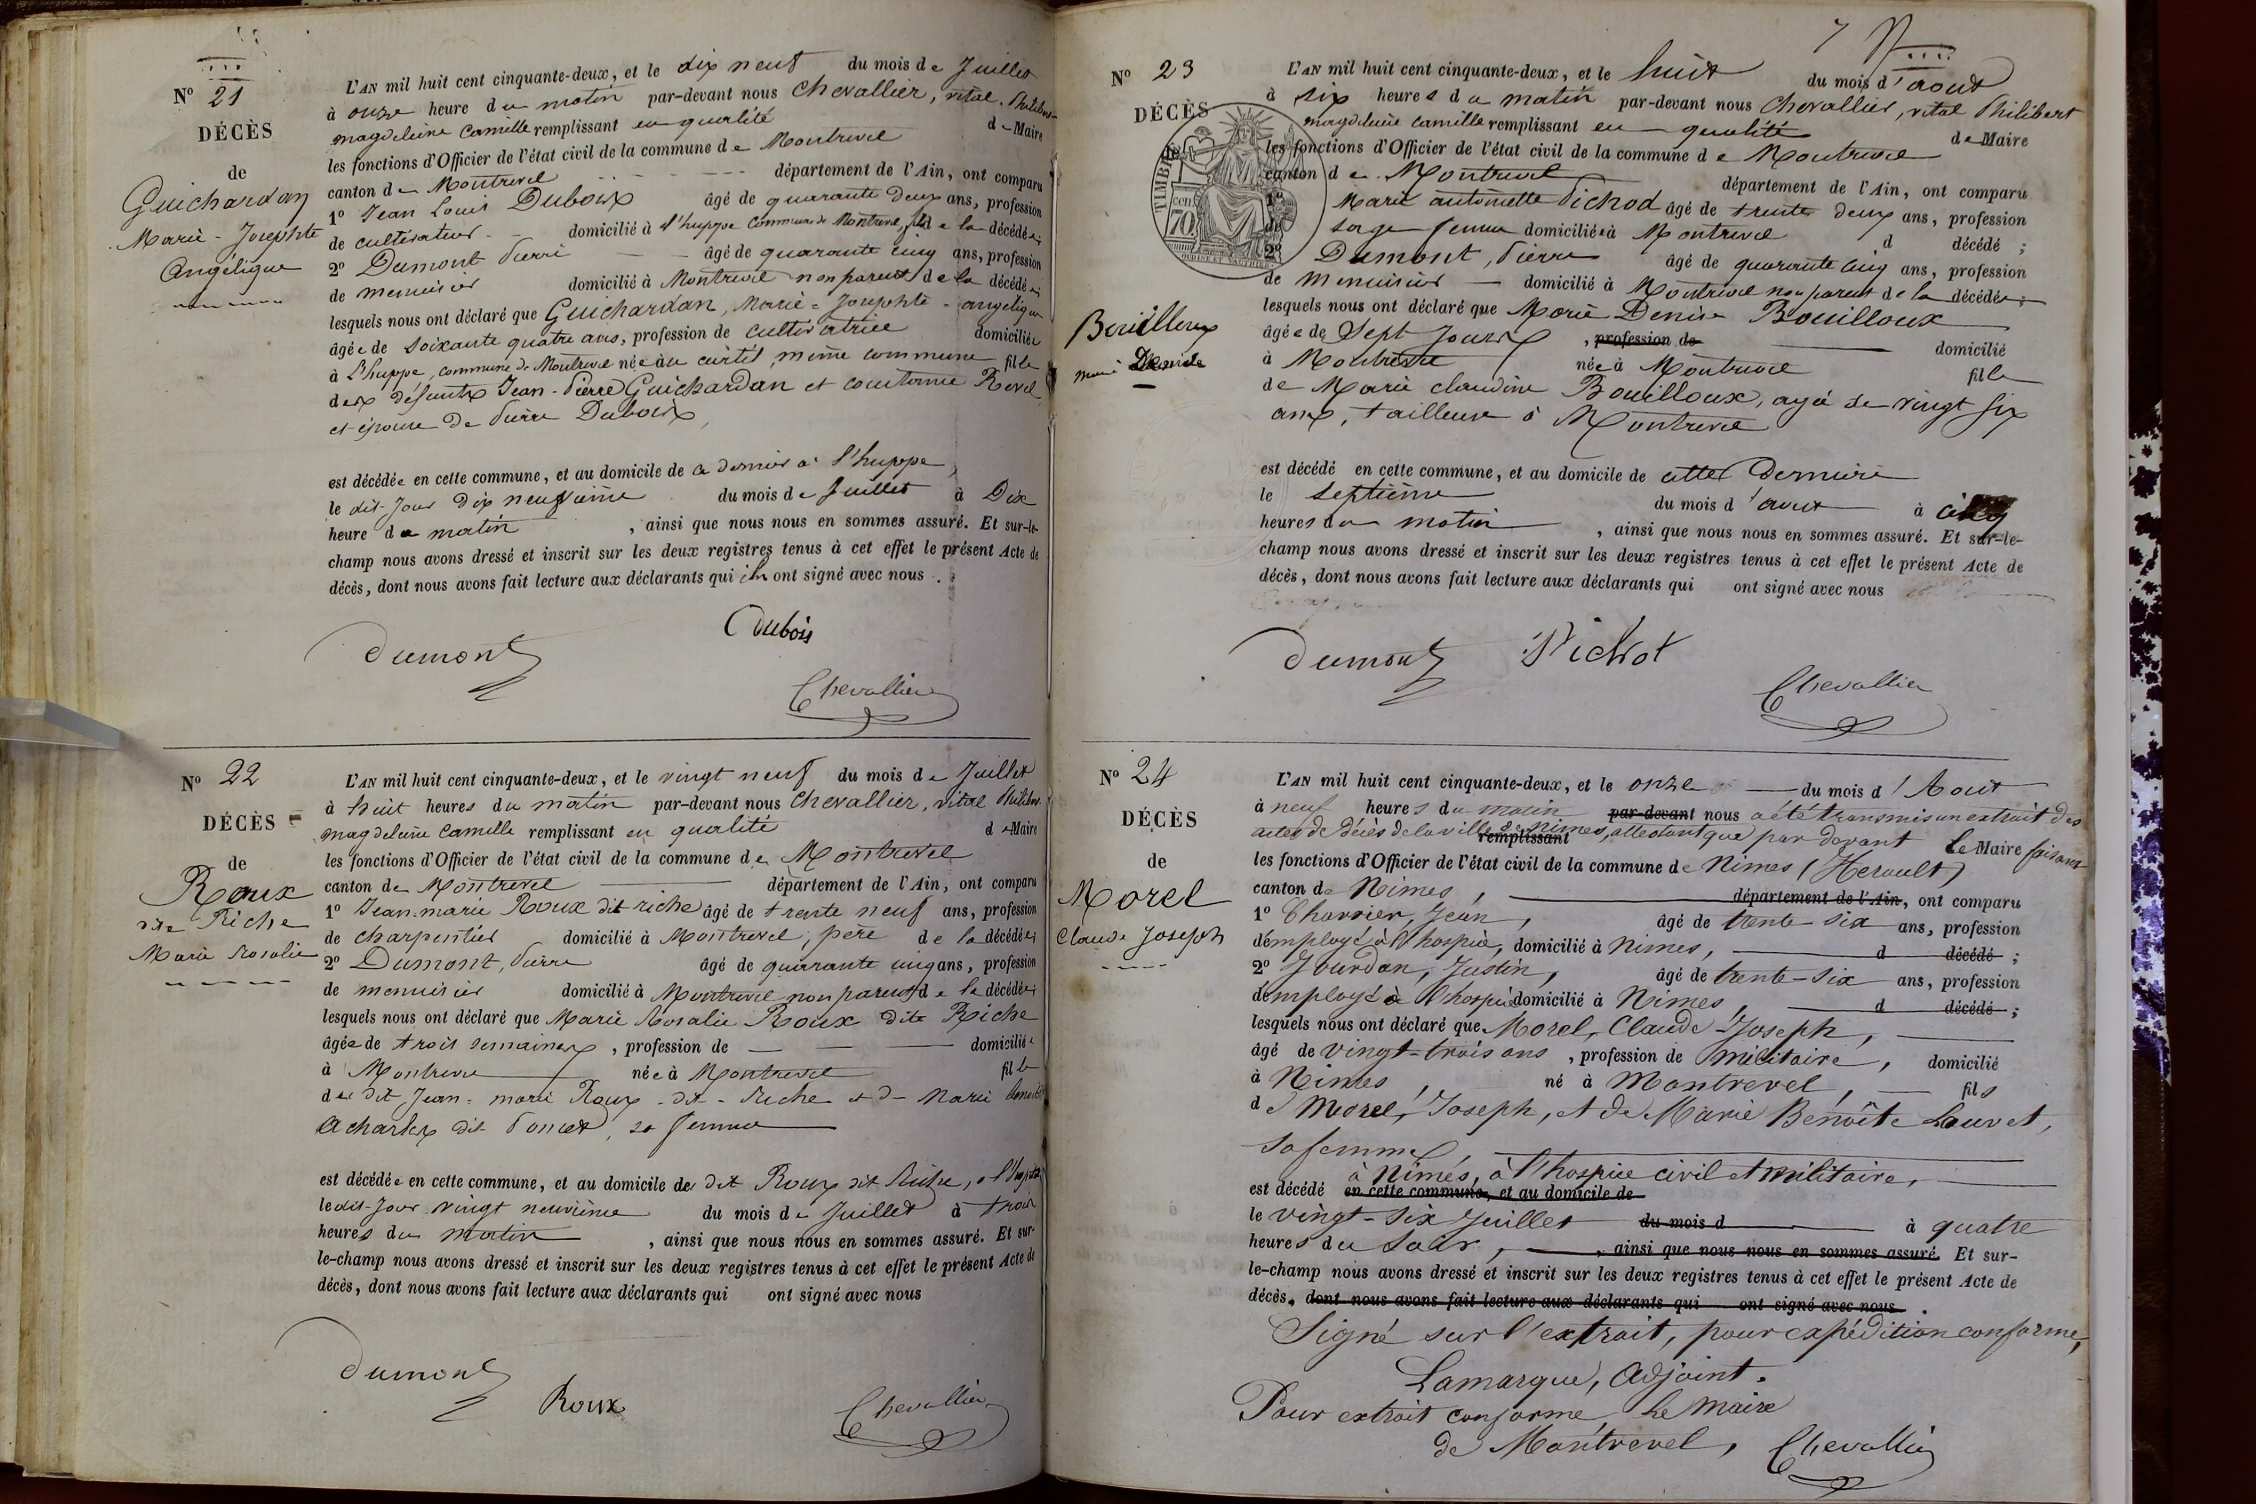 N° 21
DÉCÈS
de
Guichardan
Marie-Josephte
Angélique
L'AN mil huit cent cinquante-deux, et le dix neuf du mois de Juillet
à onze heure du matin par-devant nous Chevallier, vital Philibert
magdeleine Camille remplissant en qualité de Maire
les fonctions d'Officier de l'état civil de la commune de Montrevel
canton de Montrevel département de l'Ain, ont comparu
1° Jean Louis Duboix âgé de quarante deux ans, profession
de cultivateur domicilié à l'huppe commune de Montrevel, fils de la décédée;
2° Dumont Pierre âgé de quarante cinq ans, profession
de menuisier domicilié à Montrevel non parent de la décédée;
lesquels nous ont déclaré que Guichardan, Marie-Josephte-angélique
âgée de soixante quatre ans, profession de cultivatrice domiciliée
à L'huppe, commune de Montrevel née au curtil même commune fille
des défunts Jean-Pierre Guichardan et Revel
et épouse de Pierre Duboix,
est décédée en cette commune, et au domicile de ce dernier à l'huppe,
le dit-Jour dix neuvième du mois de Juillet à Dix
heure du matin, ainsi que nous nous en sommes assuré. Et sur-le-
champ nous avons dressé et inscrit sur les deux registres tenus à cet effet le présent Acte de
décès, dont nous avons fait lecture aux déclarants qui ont signé avec nous.
Dumont
Dubois
Chevallier
N° 22
DÉCÈS
de
Roux
dite Riche
Marie Rosalie
L'AN mil huit cent cinquante-deux, et le vingt neuf du mois de Juillet
à huit heures du matin par-devant nous Chevallier, vital Philibert
magdeleine Camille remplissant en qualité de Maire
les fonctions d'Officier de l'état civil de la commune de Montrevel
canton de Montrevel département de l'Ain, ont comparu
1° Jean-marie Roux dit riche âgé de trente neuf ans, profession
de charpentier domicilié à Montrevel, père de la décédée;
2° Dumont, Pierre âgé de quarante cinq ans, profession
de menuisier domicilié à Montrevel non parent de la décédée;
lesquels nous ont déclaré que Marie Rosalie Roux dite Riche
âgée de trois semaines, profession de domiciliée
à Montrevel née à Montrevel fille
du dit Jean-marie Roux-dit-Riche et de Marie Benoite
acharles dit Poncet, sa femme
est décédée en cette commune, et au domicile de dit Roux dit Riche,
le dit-Jour vingt neuvième du mois de Juillet à trois
heures du matin, ainsi que nous nous en sommes assuré. Et sur-
le-champ nous avons dressé et inscrit sur les deux registres tenus à cet effet le présent Acte de
décès, dont nous avons fait lecture aux déclarants qui ont signé avec nous
Dumont
Roux
Chevallier
7
N° 23
DÉCÈS
de
TIMBRE
70 cen
Bouilloux
marie Denise
L'AN mil huit cent cinquante-deux, et le huit du mois d'aout
à six heures du matin par-devant nous Chevallier, vital Philibert
magdeleine Camille remplissant en qualité de Maire
les fonctions d'Officier de l'état civil de la commune de Montrevel
canton de Montrevel département de l'Ain, ont comparu
1° Marie antoinette Pichod âgé de trente deux ans, profession
de sage femme domiciliée à Montrevel d décédé;
2° Dumont, Pierre âgé de quarante cinq ans, profession
de menuisier domicilié à Montrevel non parent de la décédée;
lesquels nous ont déclaré que Marie Denise Bouilloux
âgée de Sept Jours, profession de domicilié
à Montrevel née à Montrevel fille
de Marie claudine Bouilloux, agée de vingt six
ans, tailleuse à Montrevel
est décédé en cette commune, et au domicile de cette Dernière
le septième du mois d'aout à cinq
heures du matin, ainsi que nous nous en sommes assuré. Et sur-le-
champ nous avons dressé et inscrit sur les deux registres tenus à cet effet le présent Acte de
décès, dont nous avons fait lecture aux déclarants qui ont signé avec nous
Dumont
Pichot
Chevallier
N° 24
DÉCÈS
de
Morel
Claude Joseph
L'AN mil huit cent cinquante-deux, et le onze du mois d'Aout
à neuf heures du matin par-devant nous a été transmis un extrait des
actes de Décès de la ville de Nimes, attestant que par devant remplissant Le Maire faisant
les fonctions d'Officier de l'état civil de la commune de Nimes (Herault)
canton de Nimes, département de l'Ain, ont comparu
1° Charrier, Jean, âgé de trente-six ans, profession
d'employé à l'hospice, domicilié à Nimes, d décédé;
2° Jourdan, Justin, âgé de trente-six ans, profession
d'employé à l'hospice domicilié à Nimes, d décédé;
lesquels nous ont déclaré que Morel, Claude Joseph,
âgé de vingt-trois ans, profession de militaire, domicilié
à Nimes, né à Montrevel, fils
de Morel, Joseph, et de Marie Benoîte Louvet,
sa femme,
à Nimes, à l'hospice civil et militaire,
est décédé en cette commune, et au domicile de
le vingt-six Juillet du mois d à quatre
heures du soir, ainsi que nous nous en sommes assuré. Et sur-
le-champ nous avons dressé et inscrit sur les deux registres tenus à cet effet le présent Acte de
décès, dont nous avons fait lecture aux déclarants qui ont signé avec nous.
Signé sur l'extrait, pour expédition conforme,
Lamarque, Adjoint.
Pour extrait conforme, Le Maire
de Montrevel, Chevallier